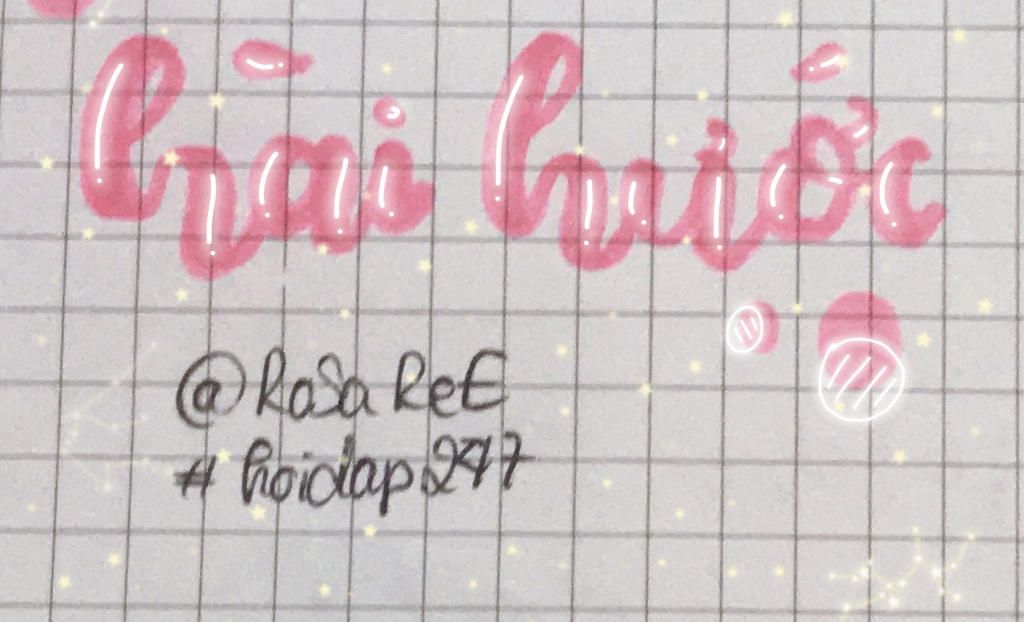 hài hước
@RoSa ReE
#hoidap247